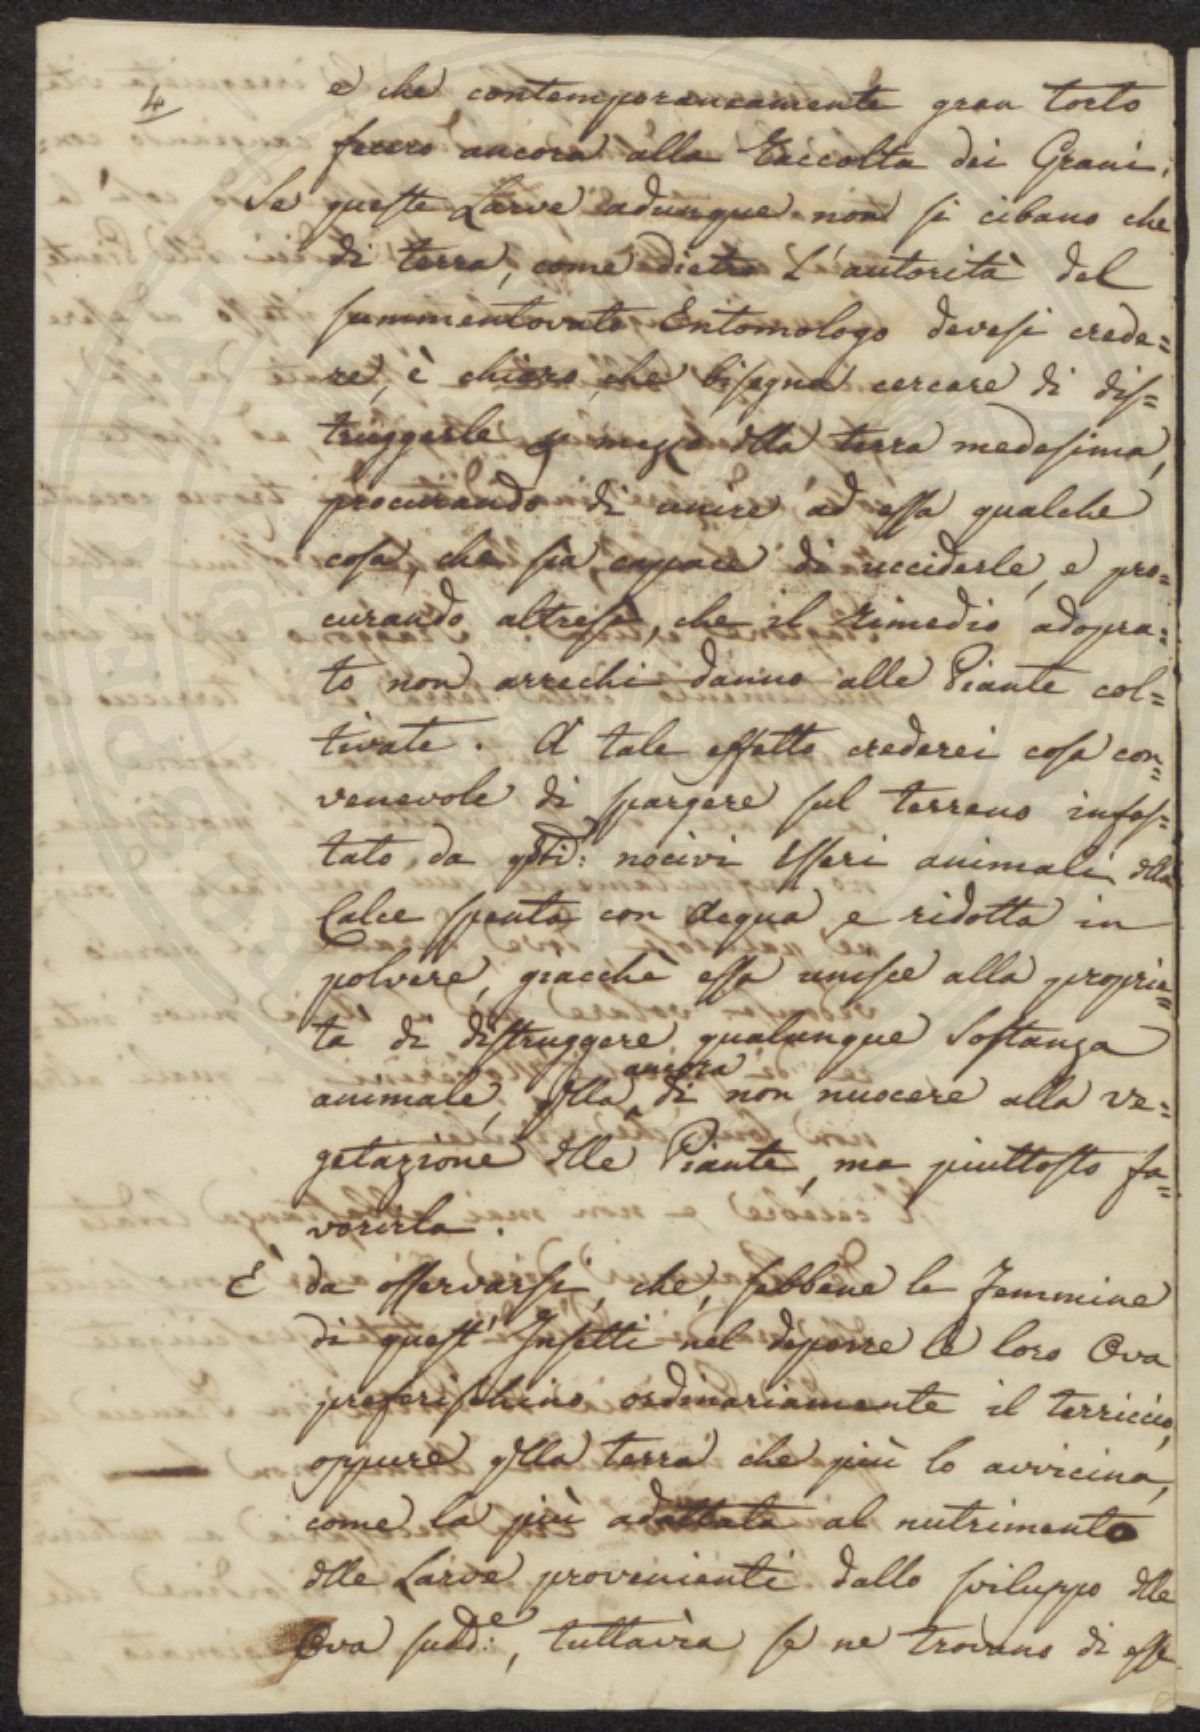 4
e che contemporaneamente gran torto
fecero ancora alla Raccolta dei Grani.
Se queste Larve adunque non si cibano che
di terra, come dietro l'autorità del
summentovato Entomologo devesi crede=
re, è chiaro, che bisogna cercare di dis=
truggerle p mezzo dlla terra medesima,
procurando di unire ad essa qualche
cosa, che sia capace di ucciderle, e pro=
curando altresì, che il Rimedio adopra=
to non arrechi danno alle Piante col=
tivate. A tale effetto crederei cosa con=
venevole di spargere sul terreno infes=
tato da qsti: nocivi Esseri animali dlla
Calce spenta con Acqua, e ridotta in
polvere, giacchè essa unisce alla proprie=
tà di distruggere qualunque Sostanza
ancora
animale, qlla di non nuocere alla ve=
getazione dlle Piante, ma piuttosto fa=
vorirla.
È da osservarsi, che, sebbene le Femmine
di quest' Insetti nel deporre le loro Ova
preferischino ordinariamente il terriccio,
oppure qlla terra che più lo avvicina,
come la più adattata al nutrimento
dlle Larve provenienti dallo sviluppo dlle
Ova sudde:, tuttavia se ne trovano di esse